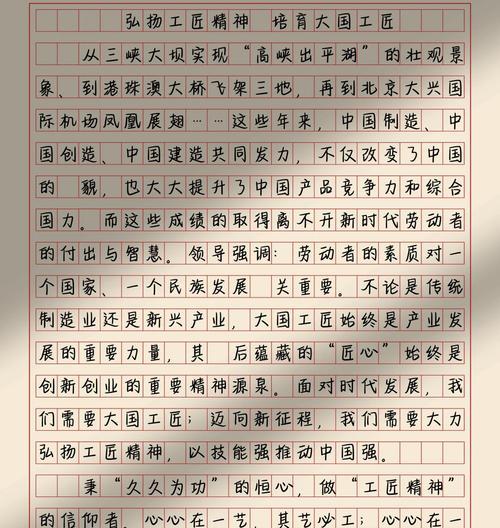 弘扬工匠精神 培育大国工匠
从三峡大坝实现“高峡出平湖”的壮观景
象、到港珠澳大桥飞架三地，再到北京大兴国
际机场凤凰展翅……这些年来，中国制造、中
国创造、中国建造共同发力，不仅改变了中国
的 貌，也大大提升了中国产品竞争力和综合
国力。而这些成绩的取得离不开新时代劳动者
的付出与智慧。领导强调：劳动者的素质对一
个国家、一个民族发展 关重要。不论是传统
制造业还是新兴产业，大国工匠始终是产业发
展的重要力量，其 后蕴藏的“匠心”始终是
创新创业的重要精神源泉。面对时代发展，我
们需要大国工匠；迈向新征程，我们需要大力
弘扬工匠精神，以技能强推动中国强。
秉“久久为功”的恒心，做“工匠精神”
的信仰者。心心在一艺，其艺必工；心心在一